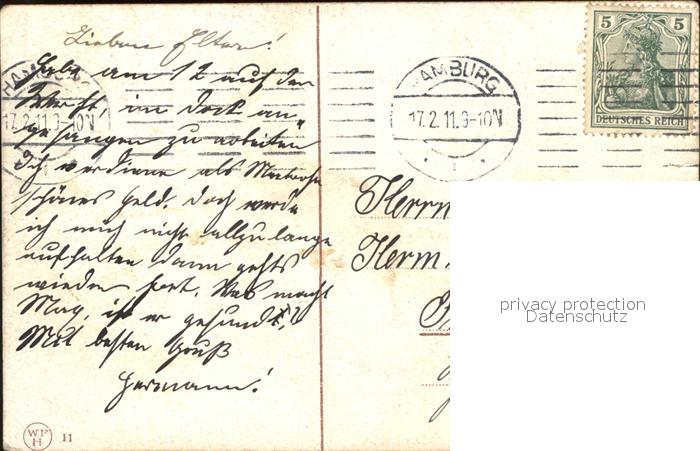 Lieben Eltern!
Habe am 12 auf der
Werft im Dock an„
gefangen zu arbeiten
Ich verdiene als Matrose
schönes Geld. Doch werde
ich mich nicht allzulange
aufhalten dann gehts
wieder fort. Was macht
Max, ist er gesund?
Mit besten Gruß
Hermann!
HAMBURG
17.2.11.9-10N
HAMBURG
17.2.11.9-10V
1
5 5
DEUTSCHES REICH
Herrn
Herm.
privacy protection
Datenschutz
W.F.H. 11